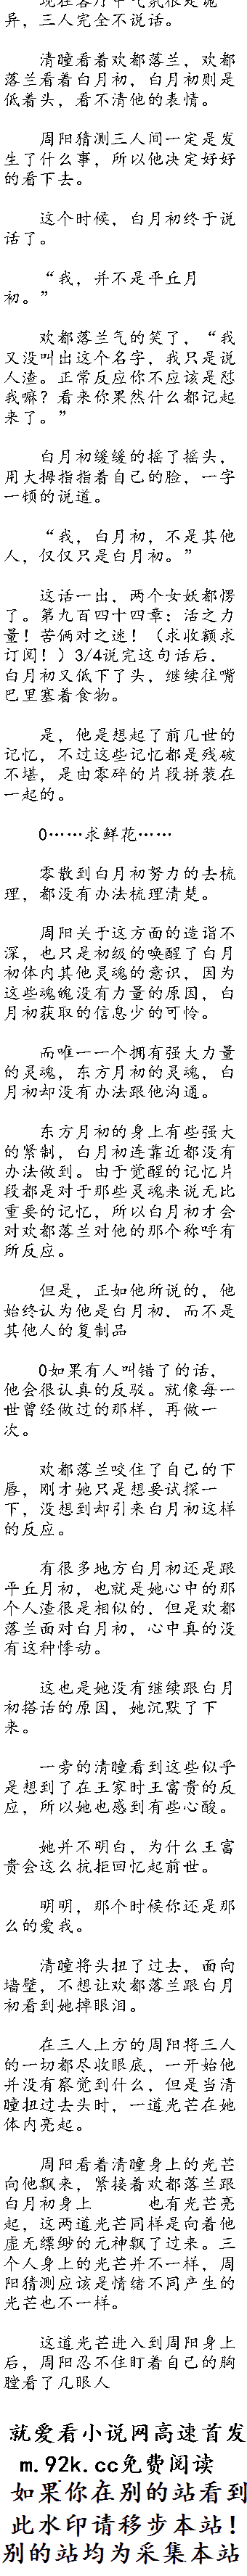 现在客厅中气氛很是诡
异，三人完全不说话。
清瞳看着欢都落兰，欢都
落兰看着白月初，白月初则是
低着头，看不清他的表情。
周阳猜测三人间一定是发
生了什么事，所以他决定好好
的看下去。
这个时候，白月初终于说
话了。
“我，并不是平丘月
初。”
欢都落兰气的笑了，“我
又没叫出这个名字，我只是说
人渣。正常反应你不应该是怼
我嘛？看来你果然什么都记起
来了。”
白月初缓缓的摇了摇头，
用大拇指指着自己的脸，一字
一顿的说道。
“我，白月初，不是其他
人，仅仅只是白月初。”
这话一出，两个女妖都愣
了。第九百四十四章：活之力
量！苦俩对之迷！（求收额求
订阅！）3/4说完这句话后，
白月初又低下了头，继续往嘴
巴里塞着食物。
是，他是想起了前几世的
记忆，不过这些记忆都是残破
不堪，是由零碎的片段拼装在
一起的。
0……求鲜花……
零散到白月初努力的去梳
理，都没有办法梳理清楚。
周阳关于这方面的造诣不
深，也只是初级的唤醒了白月
初体内其他灵魂的意识，因为
这些魂魄没有力量的原因，白
月初获取的信息少的可怜。
而唯一一个拥有强大力量
的灵魂，东方月初的灵魂，白
月初却没有办法跟他沟通。
东方月初的身上有些强大
的紧制，白月初连靠近都没有
办法做到。由于觉醒的记忆片
段都是对于那些灵魂来说无比
重要的记忆，所以白月初才会
对欢都落兰对他的那个称呼有
所反应。
但是，正如他所说的，他
始终认为他是白月初，而不是
其他人的复制品
0如果有人叫错了的话，
他会很认真的反驳。就像每一
世曾经做过的那样，再做一
次。
欢都落兰咬住了自己的下
唇，刚才她只是想要试探一
下，没想到却引来白月初这样
的反应。
有很多地方白月初还是跟
平丘月初，也就是她心中的那
个人渣很是相似的，但是欢都
落兰面对白月初，心中真的没
有这种悸动。
这也是她没有继续跟白月
初搭话的原因，她沉默了下
来。
一旁的清瞳看到这些似乎
是想到了在王家时王富贵的反
应，所以她也感到有些心酸。
她并不明白，为什么王富
贵会这么抗拒回忆起前世。
明明，那个时候你还是那
么的爱我。
清瞳将头扭了过去，面向
墙壁，不想让欢都落兰跟白月
初看到她掉眼泪。
在三人上方的周阳将三人
的一切都尽收眼底，一开始他
并没有察觉到什么，但是当清
瞳扭过去头时，一道光芒在她
体内亮起。
周阳看着清瞳身上的光芒
向他飘来，紧接着欢都落兰跟
白月初身上 也有光芒亮
起，这两道光芒同样是向着他
虚无缥缈的元神飘了过来。三
个人身上的光芒并不一样，周
阳猜测应该是情绪不同产生的
光芒也不一样。
这道光芒进入到周阳身上
后，周阳忍不住盯着自己的胸
膛看了几眼人
就爱看小说网高速首发
m.92k.cc免费阅读
如果你在别的站看到
此水印请移步本站！
别的站均为采集本站